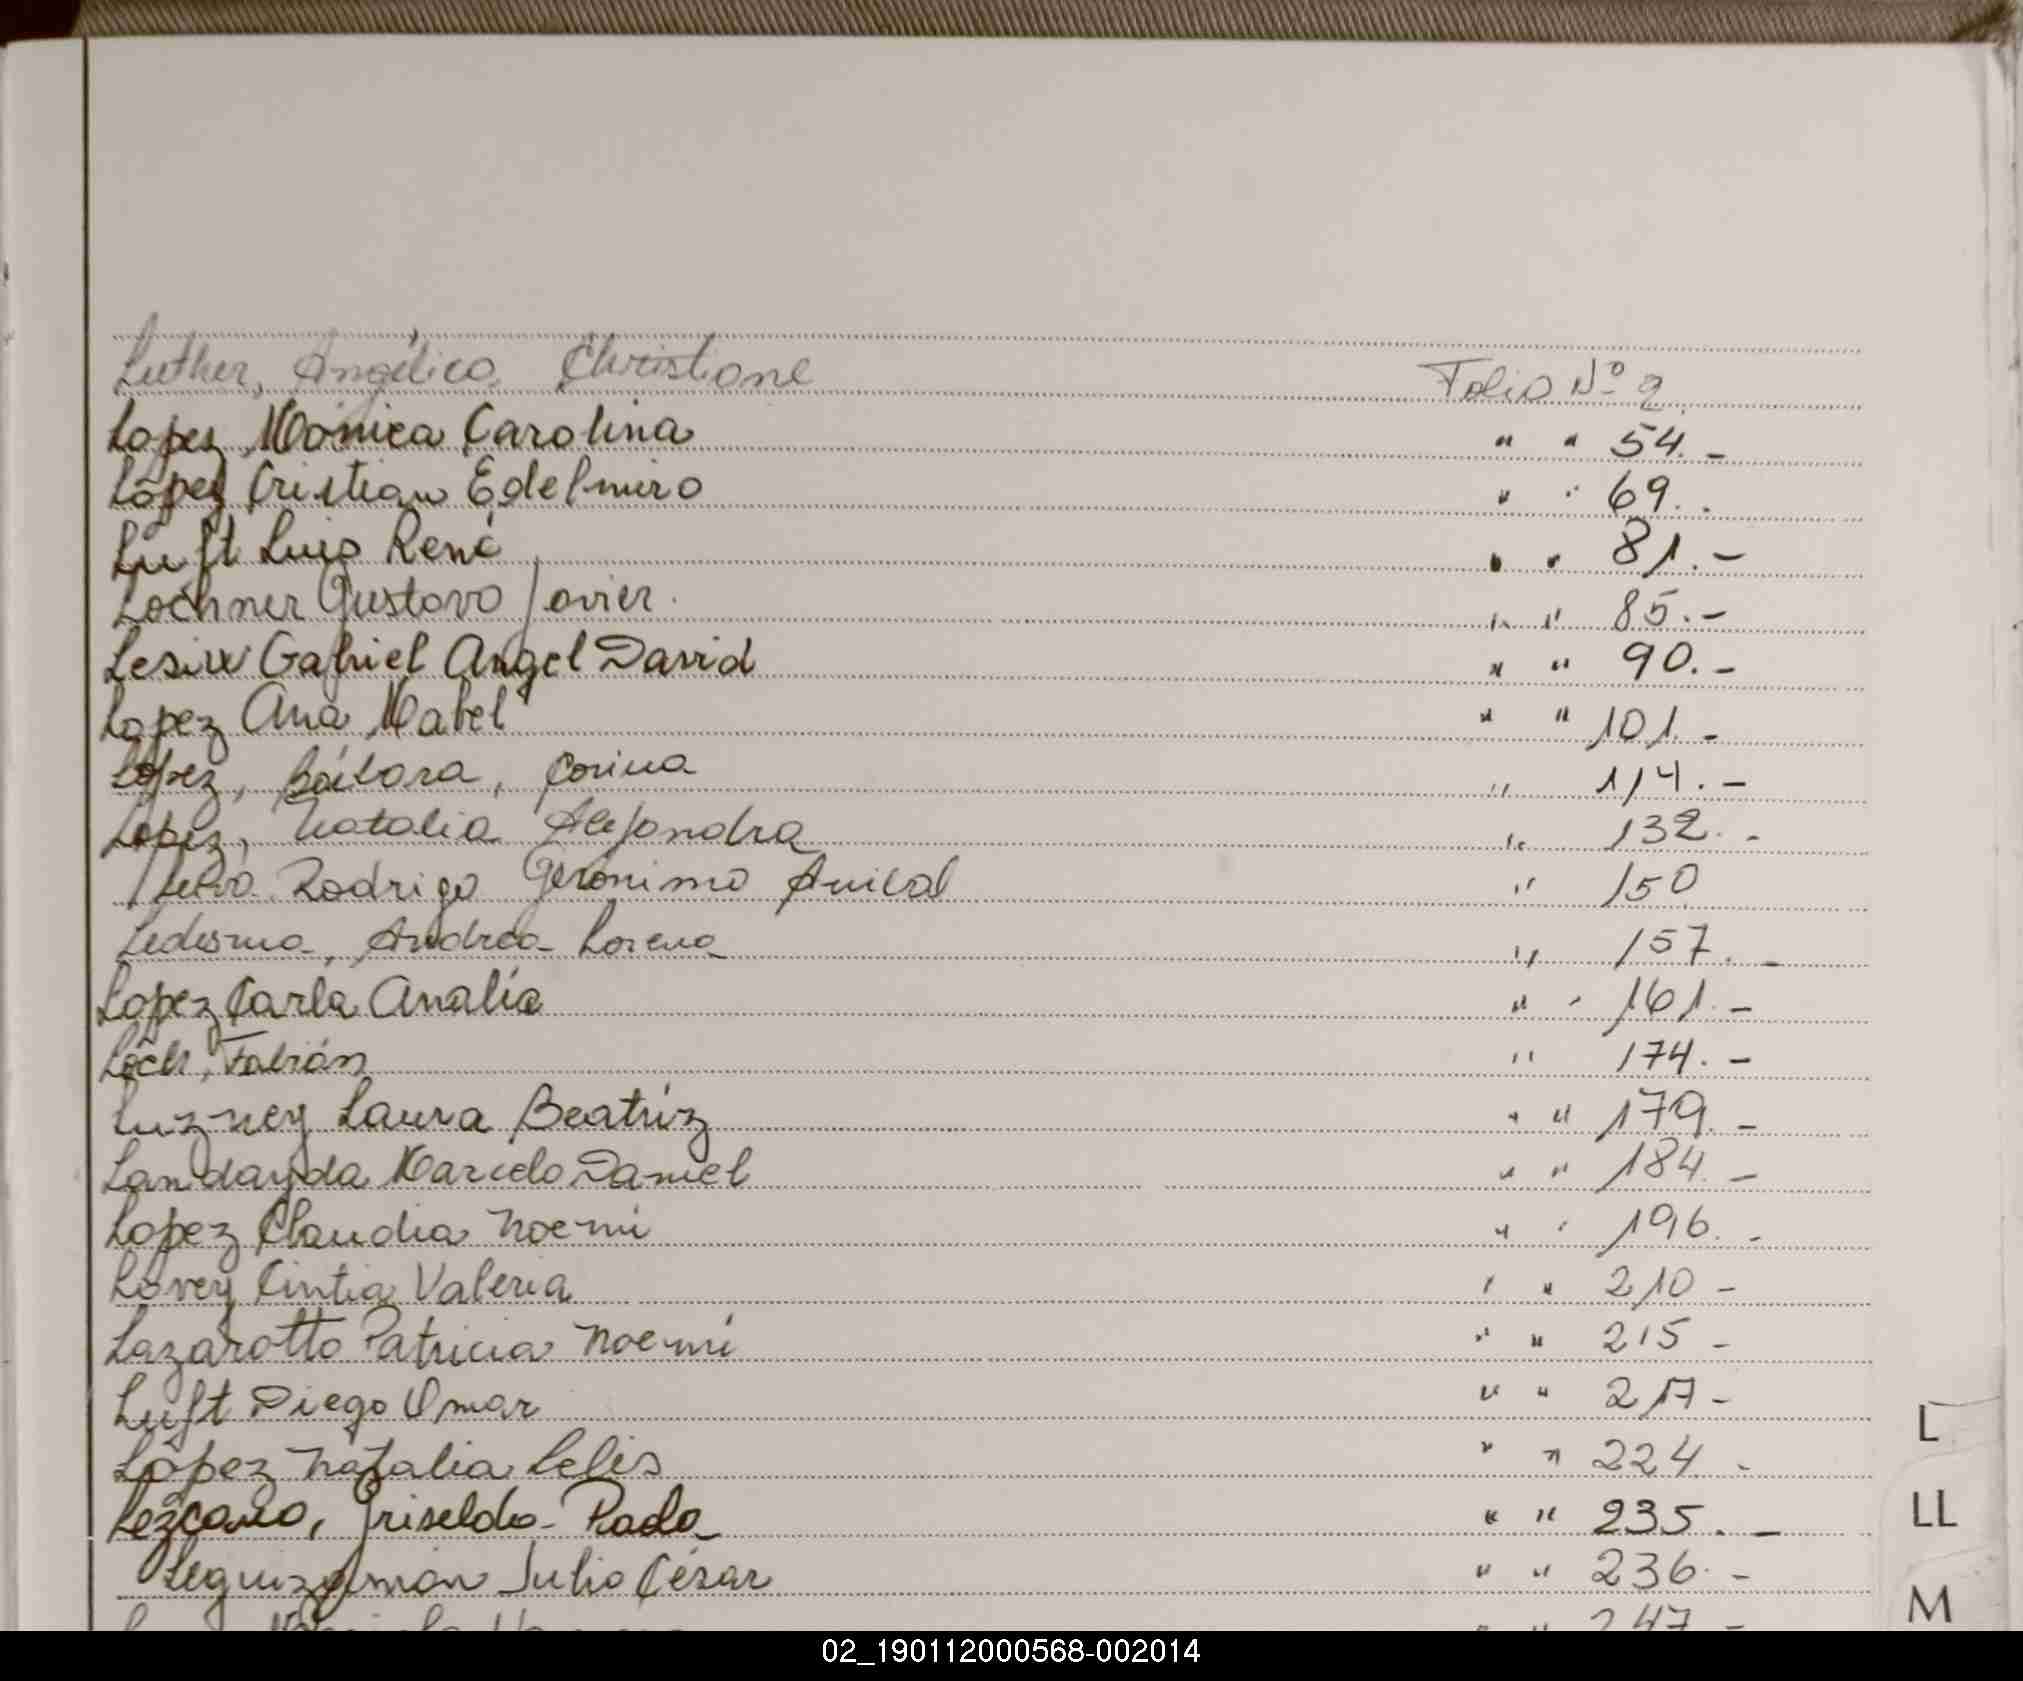 Luther, Angélica Christiane Folio Nº 2.
Lopez Monica Carolina " " 54.-
López Cristian Edelmiro " " 69.
Luft Luis René " " 81.-
Lochner Gustavo Javier. " " 85.-
Lesiw Gabriel Angel David " " 90.-
Lopez Ana Mabel " " 101.-
López, Bárbara, Corina " 114.-
Lopez, Natalia Alejandra " 132.-
Rodrigo Gerónimo Anibal " 150
Ledesma, Andrea Lorena " 157.-
Lopez Carla Analía " " 161.-
Loch, Fabián " 174.-
Luzney Laura Beatriz " " 179.-
Landayda Marcelo Daniel " " 184.-
Lopez Claudia Noemi " " 196.-
Lovey Cintia Valeria " " 210-
Lazarotto Patricia Noemi " " 215-
Luft Diego Omar " " 217-
López Natalia Lelis " " 224-
Lezcano, Griselda Paola " " 235.-
Leguizamón Julio César " " 236.-
" " 247.-
L
LL
M
02_190112000568-002014